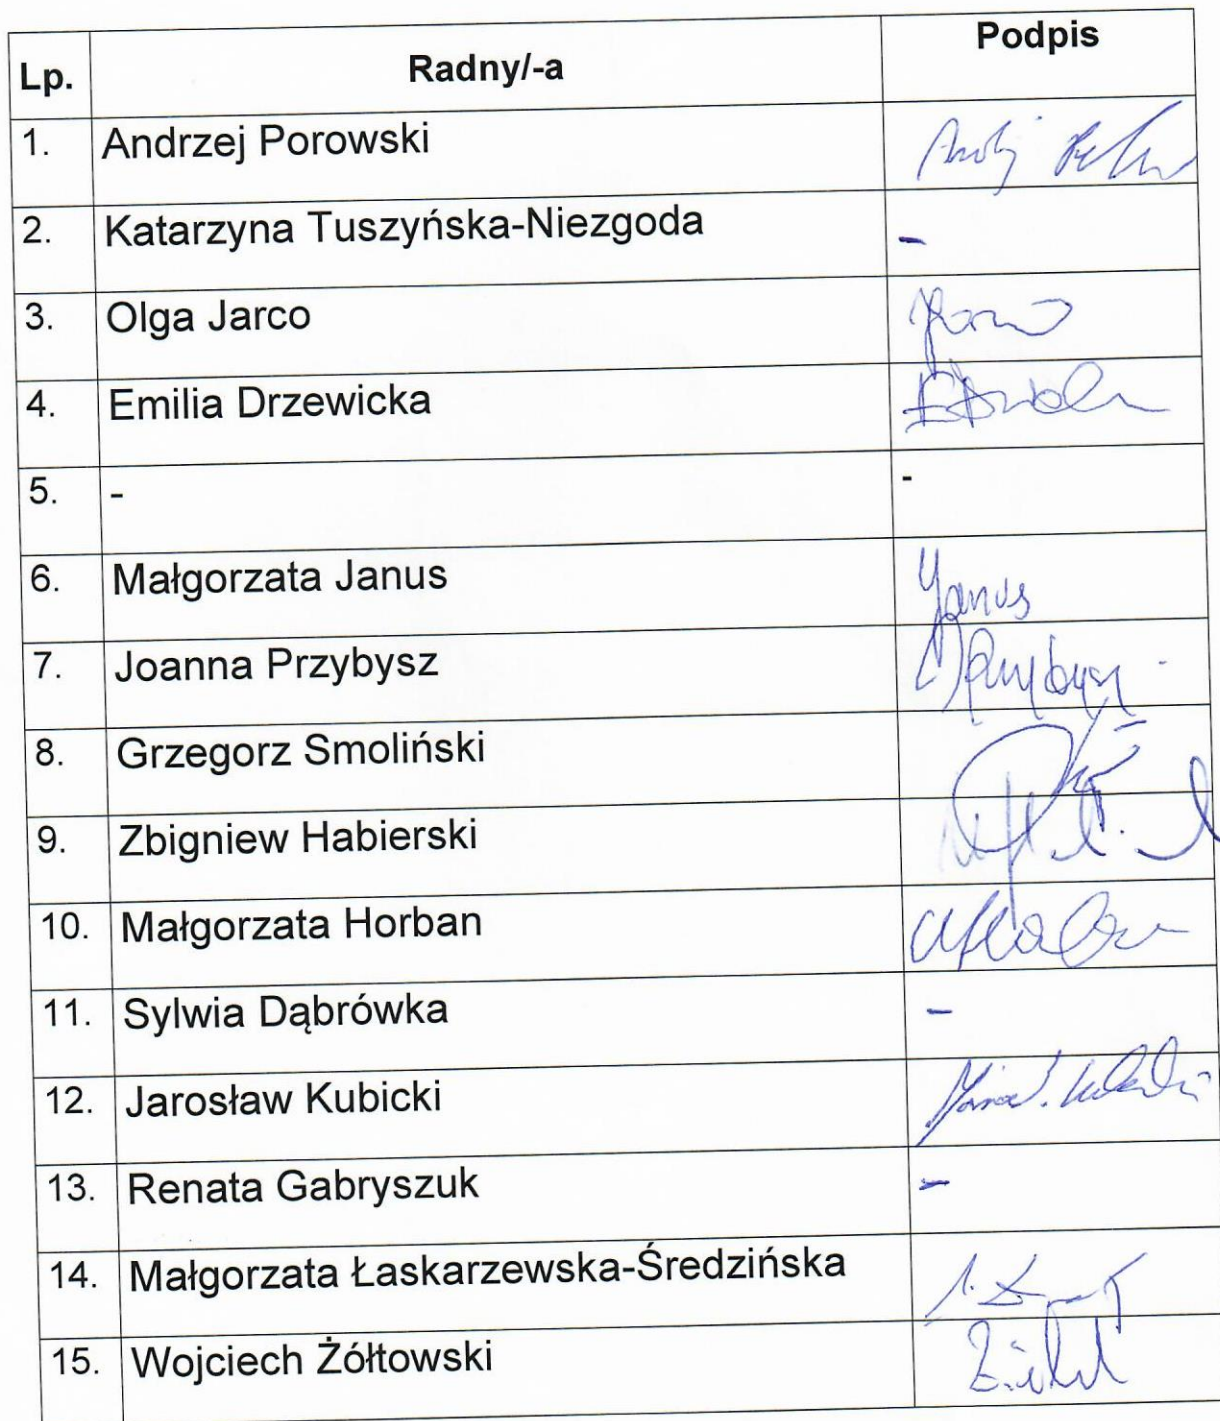 Lp. Radny/-a Podpis
1. Andrzej Porowski
2. Katarzyna Tuszyńska-Niezgoda -
3. Olga Jarco
4. Emilia Drzewicka
5. - -
6. Małgorzata Janus Janus
7. Joanna Przybysz
8. Grzegorz Smoliński
9. Zbigniew Habierski
10. Małgorzata Horban
11. Sylwia Dąbrówka -
12. Jarosław Kubicki
13. Renata Gabryszuk -
14. Małgorzata Łaskarzewska-Średzińska
15. Wojciech Żółtowski